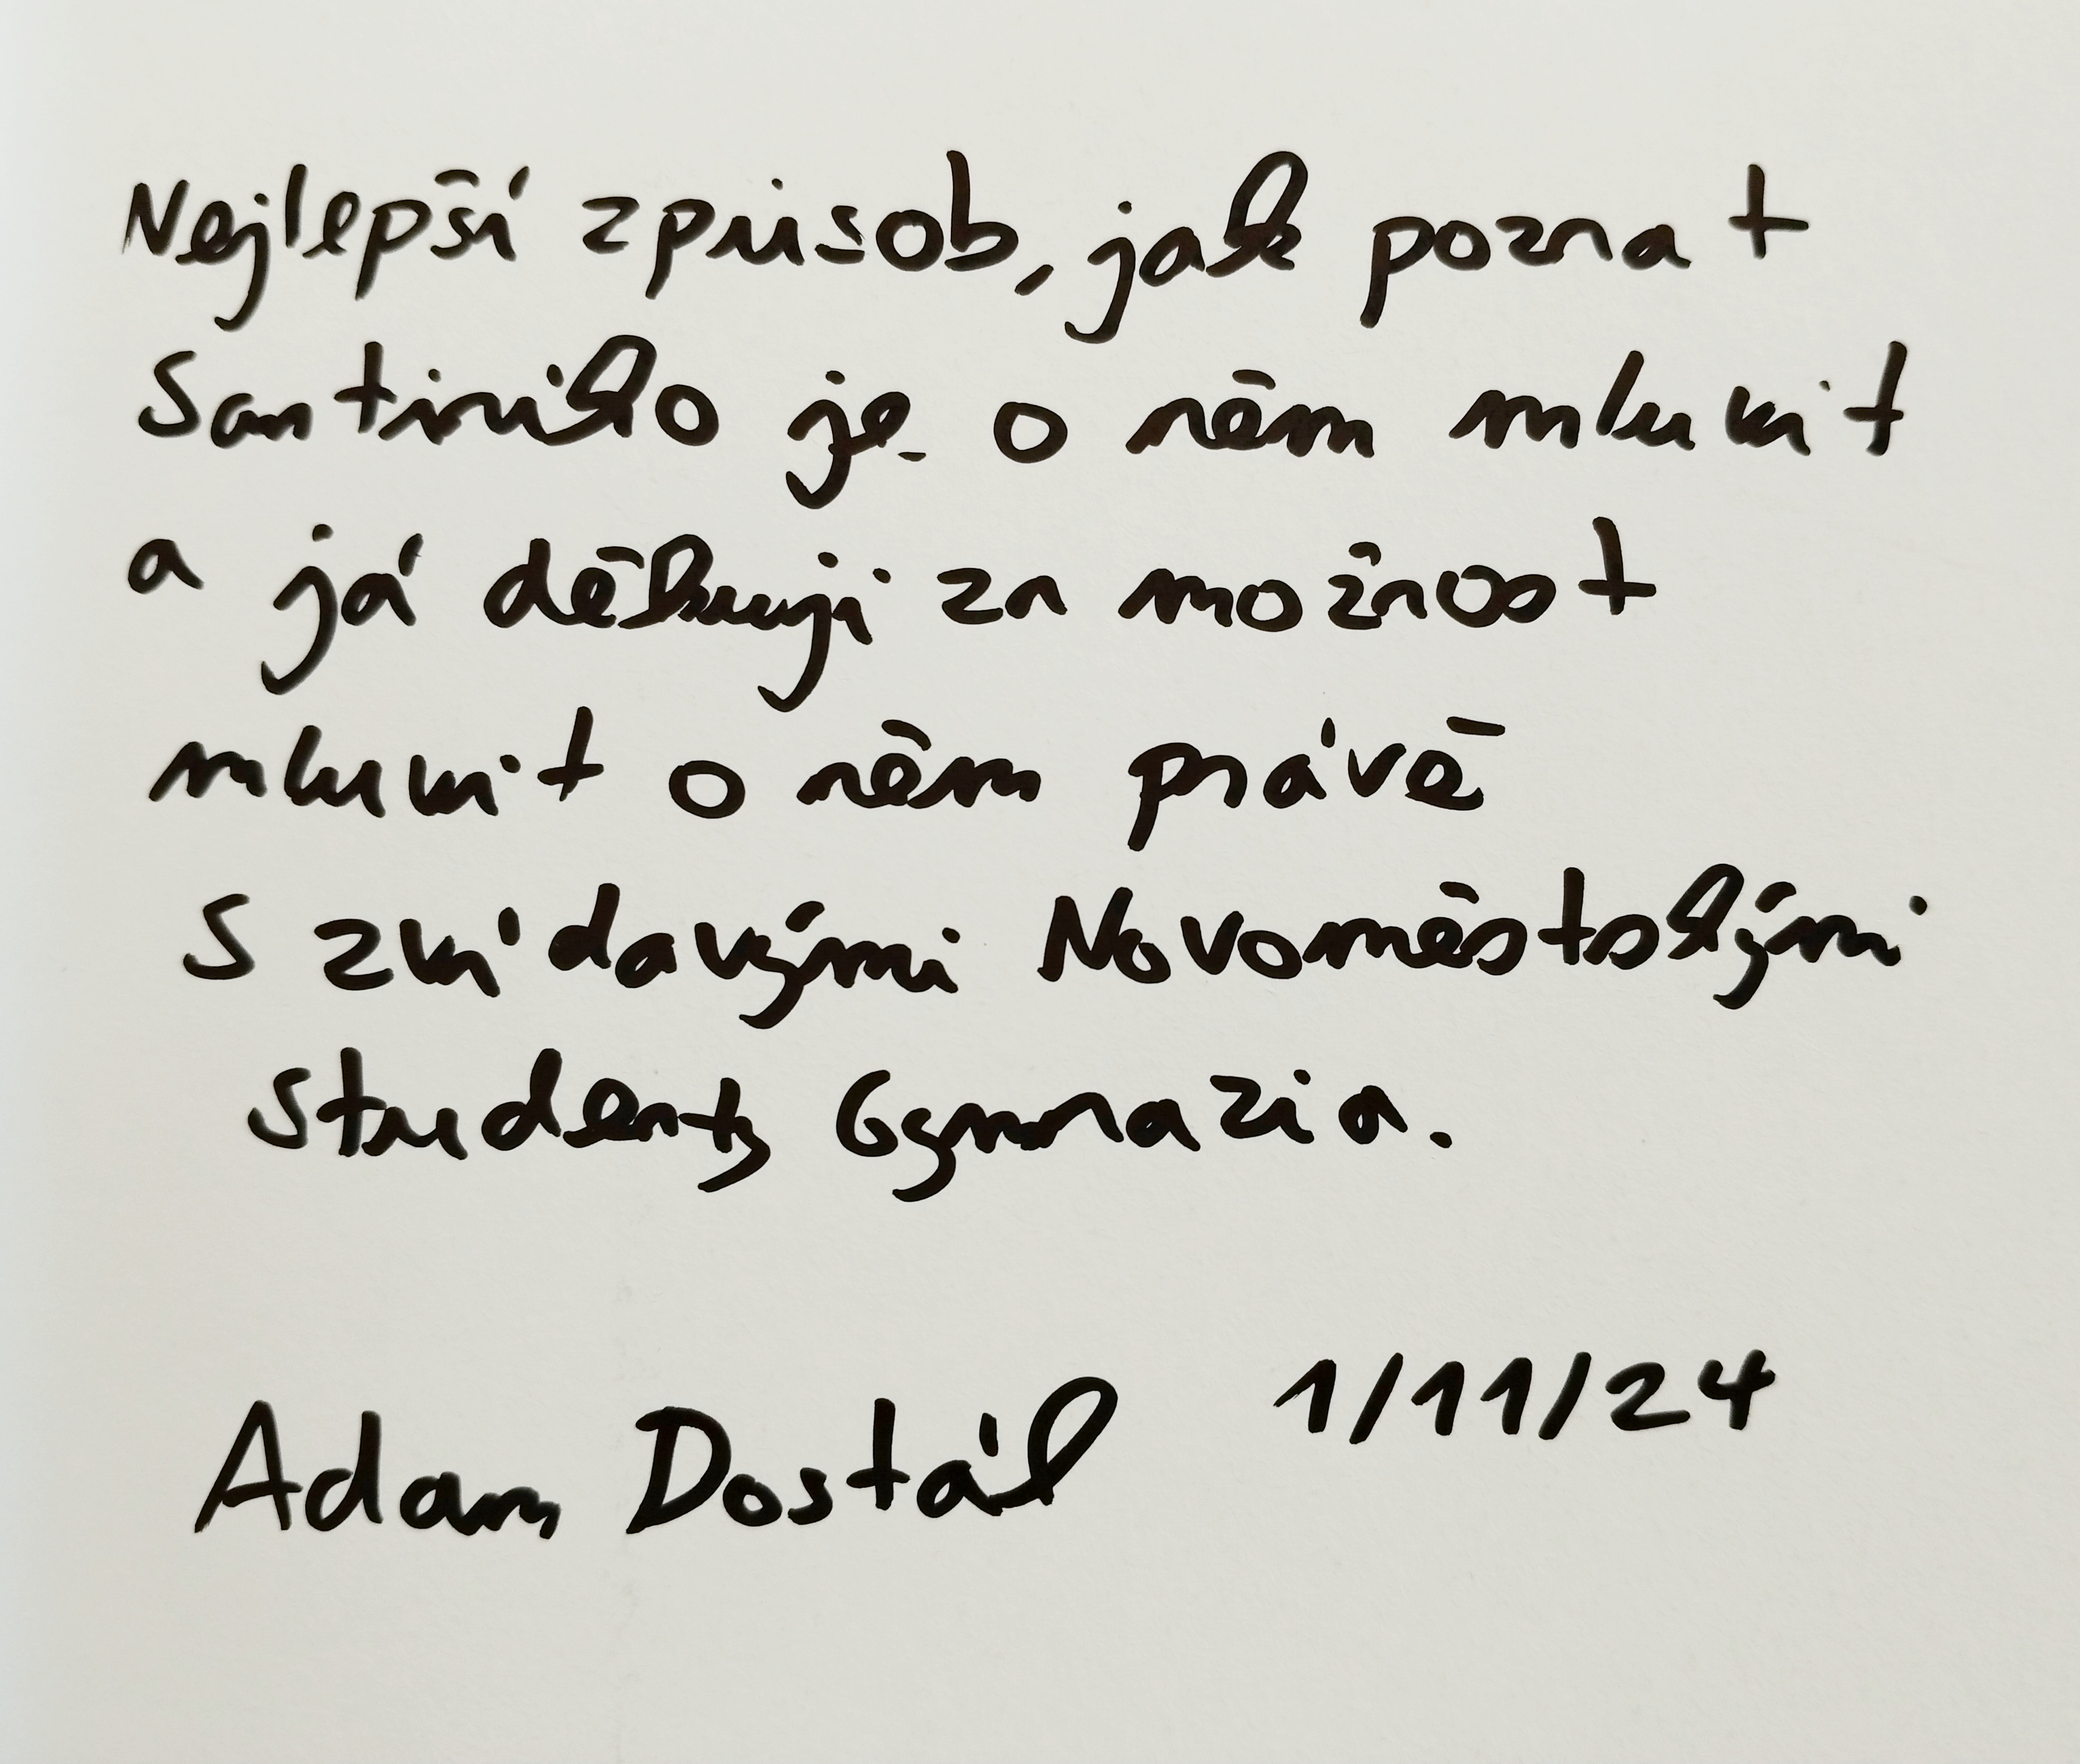 Nejlepší způsob, jak poznat
Santiniho je o něm mluvit
a já děkuji za možnost
mluvit o něm právě
s zvídavými Novoměstskými
studenty Gymnazia.
Adam Dostál 1/11/24